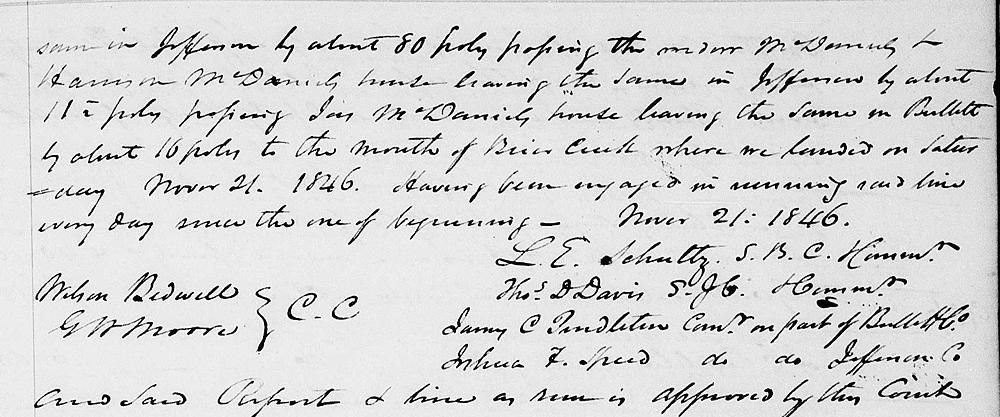 same in Jefferson by about 80 poles passing the widow McDaniels &
Harrison McDaniels house leaving the same in Jefferson by about
11 poles passing Jas McDaniels house leaving the same in Bullitt
by about 16 poles to the mouth of Brier Creek where we landed on Satur
=day Novr 21. 1846. Having been engaged in running said line
every day since the one of beginning — Novr 21: 1846.
L. E. Schultz. S. B. C.
Wilson Bedwell
Thos. D Davis S. J C.
G W Moore } C. C
James C Pendleton Comr. on part of Bullitt Co.
Joshua F. Speed do do Jefferson Co
and said Report & line as run is approved by this Court